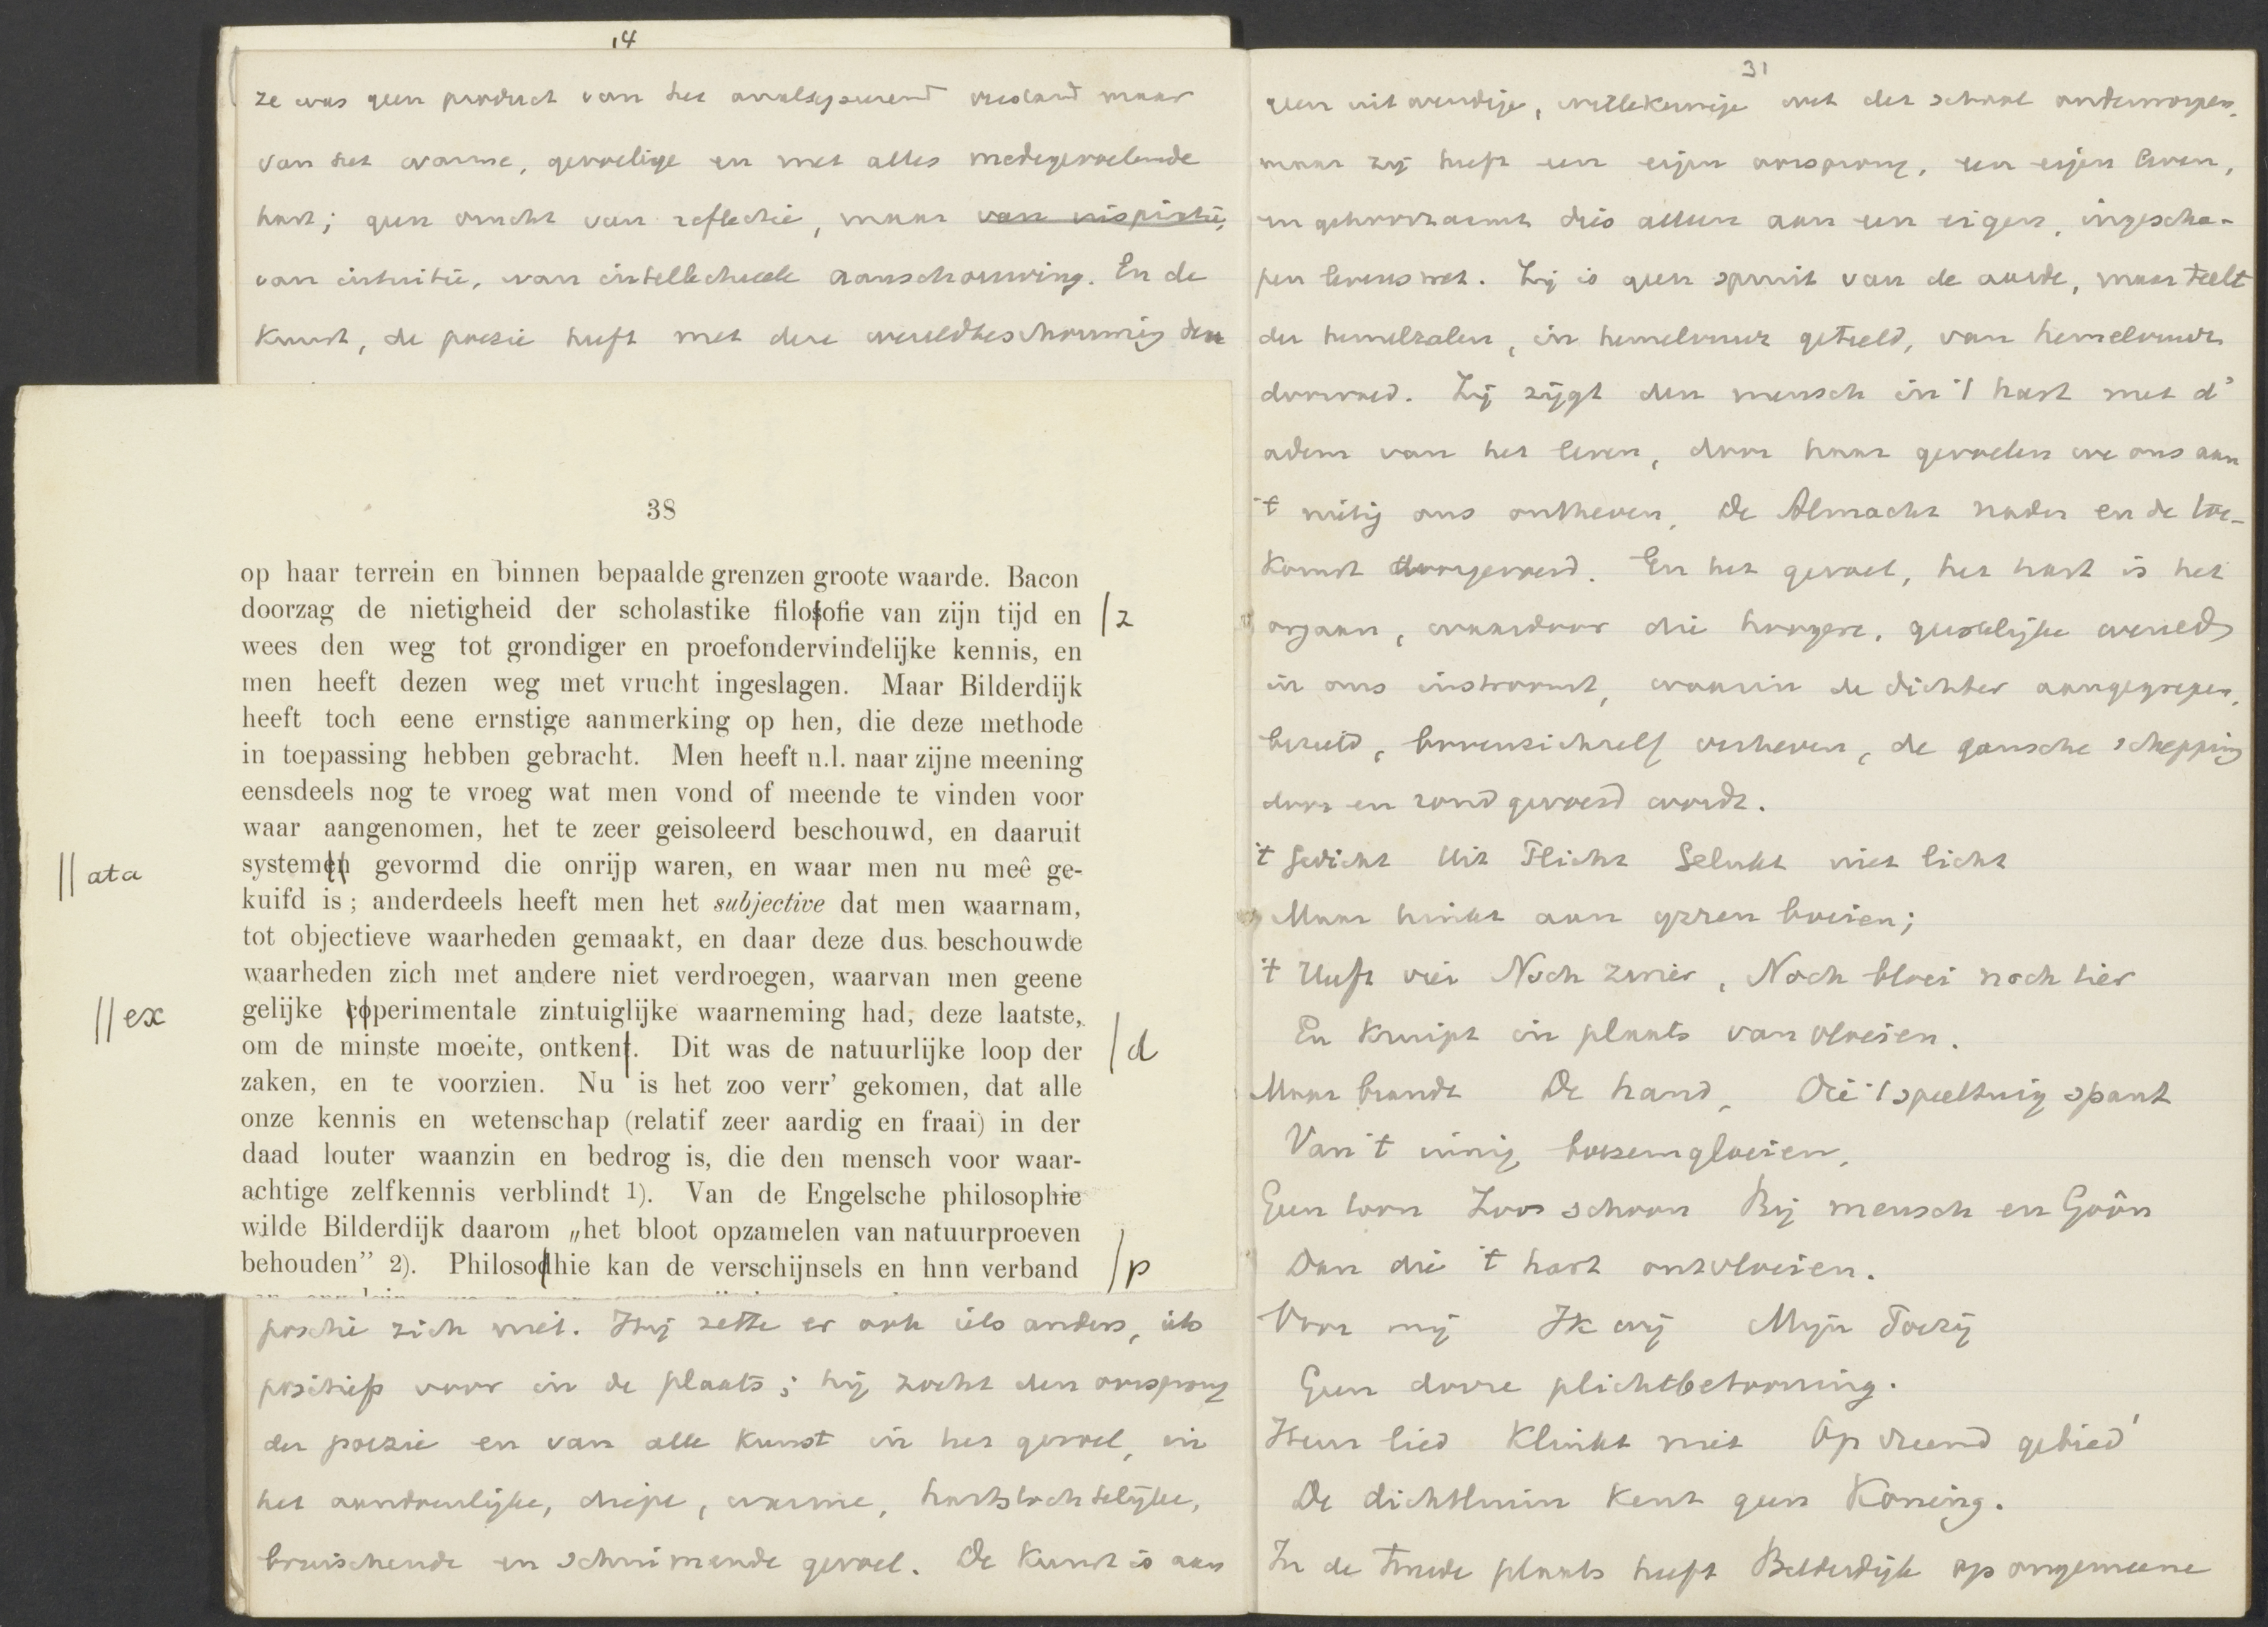 14
ze was geen product van het analyseerend verstand maar
van het warme, gevoelige en met alles medegevoelende
hart; geen vrucht van reflectie, maar van inspiratie,
van intuitie, van intellectueele aanschouwing. En de
kunst, de poezie heeft met deze wereldbeschouwing den
38
op haar terrein en binnen bepaalde grenzen groote waarde. Bacon
doorzag de nietigheid der scholastike filosofie van zijn tijd en /z
wees den weg tot grondiger en proefondervindelijke kennis, en
men heeft dezen weg met vrucht ingeslagen. Maar Bilderdijk
heeft toch eene ernstige aanmerking op hen, die deze methode
in toepassing hebben gebracht. Men heeft n.l. naar zijne meening
eensdeels nog te vroeg wat men vond of meende te vinden voor
waar aangenomen, het te zeer geisoleerd beschouwd, en daaruit
// ata systemen gevormd die onrijp waren, en waar men nu meê ge-
kuifd is; anderdeels heeft men het subjective dat men waarnam,
tot objectieve waarheden gemaakt, en daar deze dus beschouwde
waarheden zich met andere niet verdroegen, waarvan men geene
// ex gelijke coperimentale zintuiglijke waarneming had, deze laatste,
om de minste moeite, ontkent. Dit was de natuurlijke loop der /d
zaken, en te voorzien. Nu is het zoo verr' gekomen, dat alle
onze kennis en wetenschap (relatif zeer aardig en fraai) in der
daad louter waanzin en bedrog is, die den mensch voor waar-
achtige zelfkennis verblindt 1). Van de Engelsche philosophie
wilde Bilderdijk daarom „het bloot opzamelen van natuurproeven
behouden” 2). Philosodhie kan de verschijnsels en hnn verband /p
zich niet. Hij zette er ook iets anders, iets
positiefs voor in de plaats; hij zocht den oorsprong
der poezie en van alle kunst in het gevoel, in
het aandoenlijke, diepe, warme, hartstochtelijke,
bruischende en schuimende gevoel. De kunst is aan
31
geen uitwendige, willekeurige wet der school onderworpen,
maar zij heeft een eigen oorsprong, een eigen leven,
en gehoorzaamt dus alleen aan een eigen, ingescha-
pen levenswet. Zij is geen spruit van de aarde, maar teelt
der hemelzalen, in hemelvuur geteeld, van hemelvuur
doorvoed. Zij zijgt den mensch in 't hart met d'
adem van het leven, door haar gevoelen we ons aan
't nietig ons ontheven, De Almacht nader en de toe-
komst doorgevoerd. En het gevoel, het hart is het
orgaan, waardoor die hoogere, geestelijke wereld
in ons instroomt, waarin de dichter aangegrepen,
bezield, bovenzichzelf verheven, de gansche schepping
door en rond gevoerd wordt.
't Gedicht Uit Plicht Gelukt niet licht
Maar hinkt aan yzren boeien;
't Heeft vier Noch zwier, Noch bloei noch tier
En kruipt in plaats van vloeien.
Maar brandt De hand, Die 't speeltuig spant
Van 't innig boezemgloeien,
Geen toon Zoo schoon Bij mensch en Goôn
Dan die 't hart ontvloeien.
Voor mij Ik wij Mijn Poëzij
Geen dorre plichtbetooning.
Heur lied Klinkt niet Op vreemd gebied'
De dichtluim kent geen Koning.
In de tweede plaats heeft Bilderdijk op ongemeene